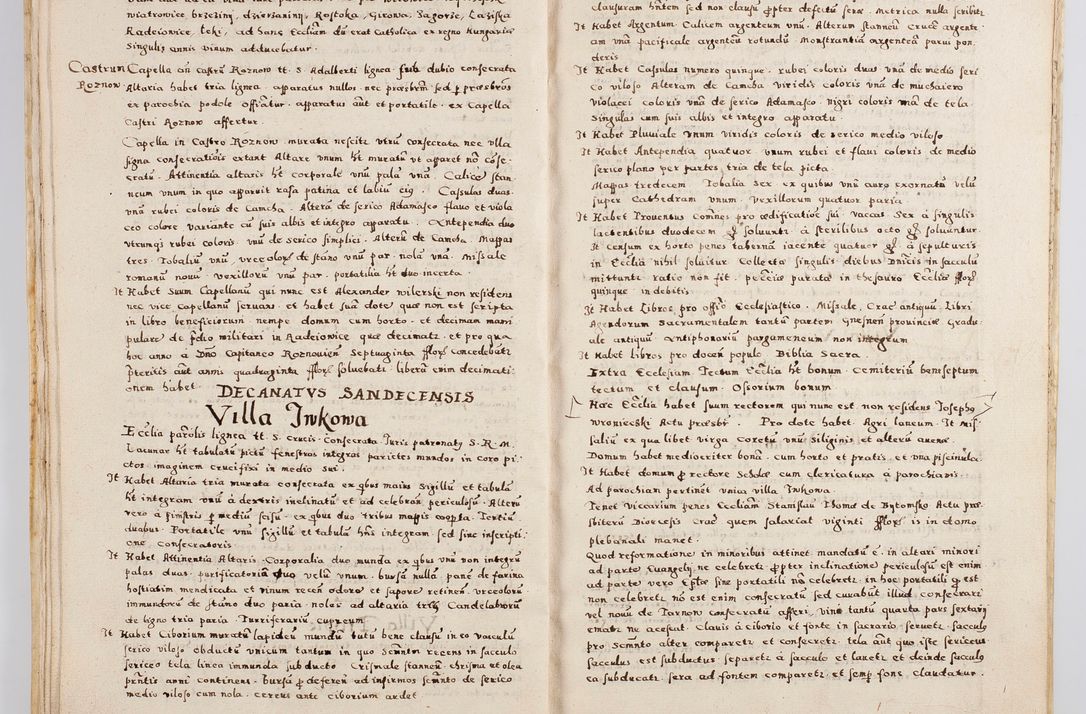 wiatrowice brzeziny, dzierzaniny Rostoka, Girowa Zagorze, Laziska
Radeiowice, leki, ad hanc Eccliam dũ erat Catholica ex regno Hungariæ
Singulis annis vinum adducebatur.
Castrum Roznow.
Capella añ castrũ Roznow tt. S. Adalberti lignea sub dubio consecrata
Altaria habet tria lignea. apparatus nullos. nec præbẽm sed p præsbros
ex parochia podole offiatur. apparatus aũt et portatile. ex Capella
Castri Roznow affertur.
Capella in Castro Roznow. murata nescitr utrũ consecrata nec ulla
signa consecratiõis extant Altare unum ht muratũ ut apparet nõ cõse-
cratũ. Attinentia altaris ht corporale unũ pala unã. Calicẽ stan-
neum unum in quo apparuit rasa patina et labiũ eiq. Casulas duas
unã rubei coloris de Camcha. Alterã de serico Adamasco flauo et viola
ceo colore variante cũ suis albis et integro apparatu. Antependia duo
utrumqz rubei coloris. unũ de serico simplici. Alterũ de Camcha. Mappas
tres. Tobaliũ unũ. urceolorũ de stano unũ par. nola unã. Missale
romanũ nouũ. vexillorũ unũ par. portatilia ht duo incerta.
It Habet Suum Capellanũ qui nunc est Alexander wilerski non residens
nec vice capellanũ seruans. et habet suã dotẽ quæ non est scripta
in libro beneficiorum nempe domum cum horto. et decimam mani
pularẽ de pdio militari in Radeiowice quæ decimatr. et pro qua
hoc anno à Dño Capitaneo Roznouien̄ Septuaginta florẽ concedebatr
pteritis aũt annis quadraginta florẽ soluebati liberã enim decimati
onem habet.
DECANATVS SANDECENSIS
Villa Inkowa
Ecclia parolis lignea tt. S. Crucis. Consecrata Iuris patronatq S. R. M.
Lacunar ht tabulatũ pictũ fenestras integras parietes mundos in coro pi-
ctos. imaginem crucifixi in medio sui.
It Habet Altaria tria murata consecrata ex qbus maius Sigillũ et tabulã
ht integram unũ à dextris inclinatũ et ad celebrañ periculosũ. Alterũ
vero à sinistris p mediũ scisũ. ex qbus duo tribus mappis coopta. Tertiũ
duabus. Portatile unũ sigillũ et tabulã hñs integram sed sine inscripti
one consecratoris.
It Habet Attinentia Altaris. Corporalia duo munda ex qbus unũ non integrũ
palas duas purificatoria duo velũ unum. bursã nullã panẽ de farina
hostiatim mendicata et vinum recen̄ odore et sapore retinen̄. urceolorũ
immundorũ de stano duo paria. nolas ad altaria tres Candelabrorũ
de ligno tria paria. Turriferariũ cupreum.
It Habet Ciborium muratũ lapideũ mundũ tutũ bene clausũ in eo vasculũ
serico viloso obductũ unicum tantum in quo Scmñtm recens in sacculo
sericeo tela linea immunda subducto. Crismale stanneũ. chrisma et olea
pñtis anni continens. bursã p deferen̄ ad infirmos scmñto de serico
medio viloso cum nola. cereus ante ciborium ardet.
clausuram hñtem sed non clausũ ppter defectũ seræ. Metrica nulla scribitr
It Habet Argentum Calicem argenteum unũ. Alterum stanneũ crucẽ argente
am unã pacificale argenteũ rotundũ. Monstrantiã argenteã parui pon
deris.
It Habet Casulas numero quinque. rubei coloris duas unã de medio seri
co viloso Alteram de Camcha viridis coloris unã de muchaiero
violacei coloris unã de serico Adamasco. nigri coloris unã de tela.
Singulas cum suis albis et integro apparatu.
It Habet Pluuiale Vnum viridis coloris de serico medio viloso
It Habet Antependia quatuor. unum rubei et flaui coloris de medio
serico plano per partes tria de tela picta.
Mappas tredecem. Tobalia sex ex quibus unũ auro exornatũ velũ
super Cathedram unum. Vexillorum quatuor paria.
It Habet Prouentus Comñes pro ædificatioẽ sui. vaccas sex à singulis
lactentibus duodecem gf soluuntr. à sterilibus octo gf soluuntur.
It censum ex horto penes tabernã iacente quatuor gf. à sepulturis
in Ecclia nihil soluitur. Collecta singulis diebus Dnicis in sacculũ
mittuntr ratio non fit. pecũiæ paratæ in thesauro Eccliæ florẽ
quinque in debitis.
It Habet Libros pro offiõ Ecclesiastico. Missale, Crac̄ antiquũ. Libri
Agendorum Sacramentalem tantũ partem Gnesnen̄ prouinciæ Gradu-
ale antiquũ Antiphonariũ pargameneum non integrum
It Habet libros pro docen̄ populo Biblia Sacra.
Extra Ecclesiam Tectum Ecclia ht bonum. Cemiteriũ beneseptum
tectum et clausum. Ossorium bonum
Hæc Ecclia habet suum rectorem qui nunc est non residens Iosepho
wroniecski Actu præsbr. Pro dote habet Agri laneum. It mis-
saliũ ex qua libet virga coretũ unũ siliginis et alterũ auenæ.
Domum habet mediocriter bonã. cum horto et pratis. et una piscinula.
It Habet domum p rectore Scholæ cum clericatura à parochianis.
Ad parochiam pertinet unica villa Inkowa.
Tenet Viccarium penes Eccliam Stanislaũ Thomæ de Bytomsko Actu præ-
sbiterũ Diœcesis Crac̄ quem salariat viginti florẽ is in domo
plebanali manet.
Quod reformationẽ in minoribus attinet mandatũ ẽ. in altari minori
ad partẽ Euangelij ne celebretr ppter inclinationẽ periculosũ est enim
ad partẽ vero Eptæ sine portatili nõ celebretr. in hoc portatili q est
non celebretr nõ est enim consecratũ sed curabũt illud consecrari
vel nouũ de Tarnow consecratũ afferi. vinũ tantũ quarta pars sextarij
ematr ne acescat. Clauis à ciborio et fonte in sacrario seruetr. sacculq
pro Scmñto alter comparetr et consecretr. tela aũt quæ iste sericeus
sacculus est subductus. separetr à sacculo et lauetr et deinde sacculq
ea subducatr. sera ad fontem comparetr et semp fons claudatur.